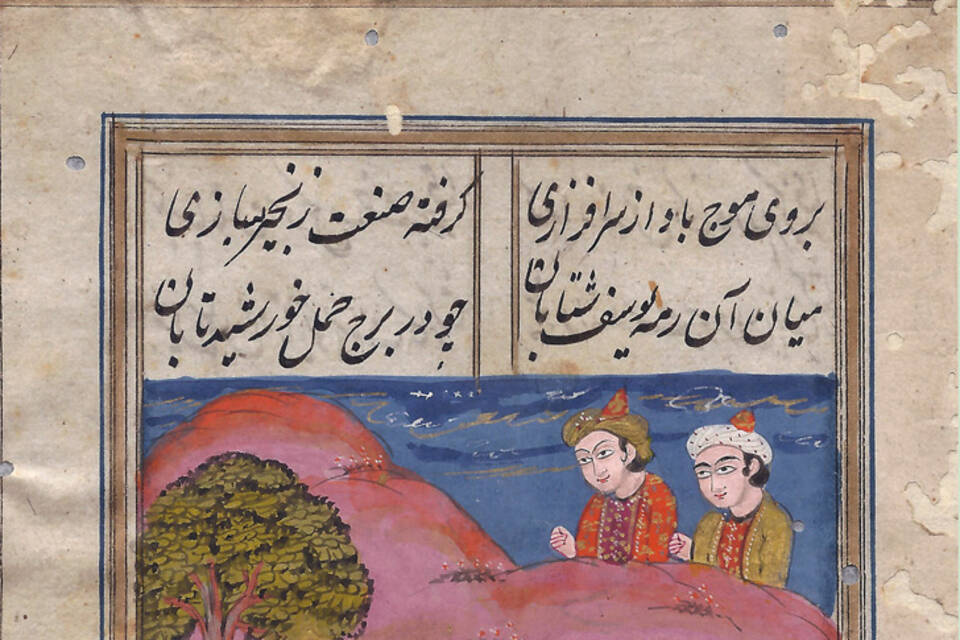 بروی موج باد از سرافرازی گرفته صنعت زنجیرسازی
میان آن رمه یوسف شتابان چو در برج حمل خورشید تابان